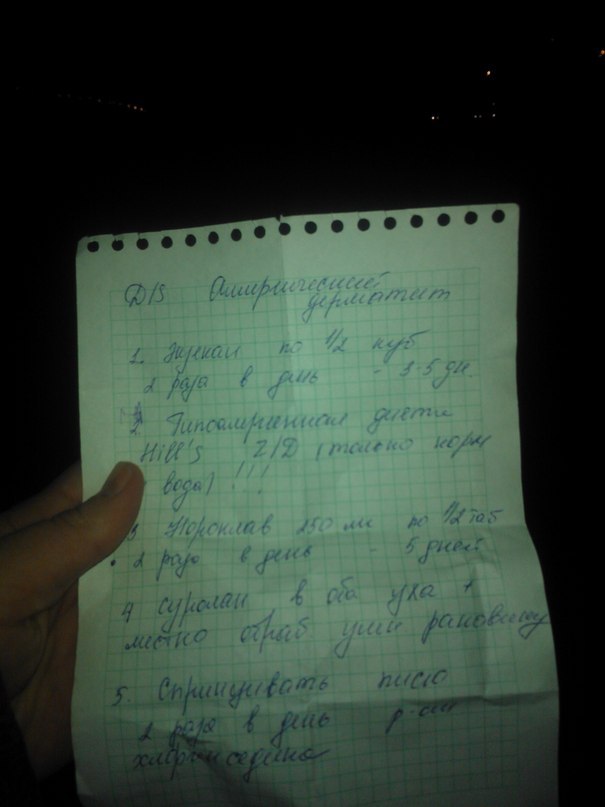 D/S Аллергический
дерматит
1. Экекан по 1/2 куб
2 раза в день - 3-5 дн.
2. Гипоаллергенная диета
Hill's Z/D (только корм
вода) !!!
3 Нороклав 250 мг по 1/2 таб
2 раза в день - 5 дней
4 Суролан в оба уха +
местно обраб уши раковину
5. Спринцевать писю
2 раза в день р-ом
хлоргекседина